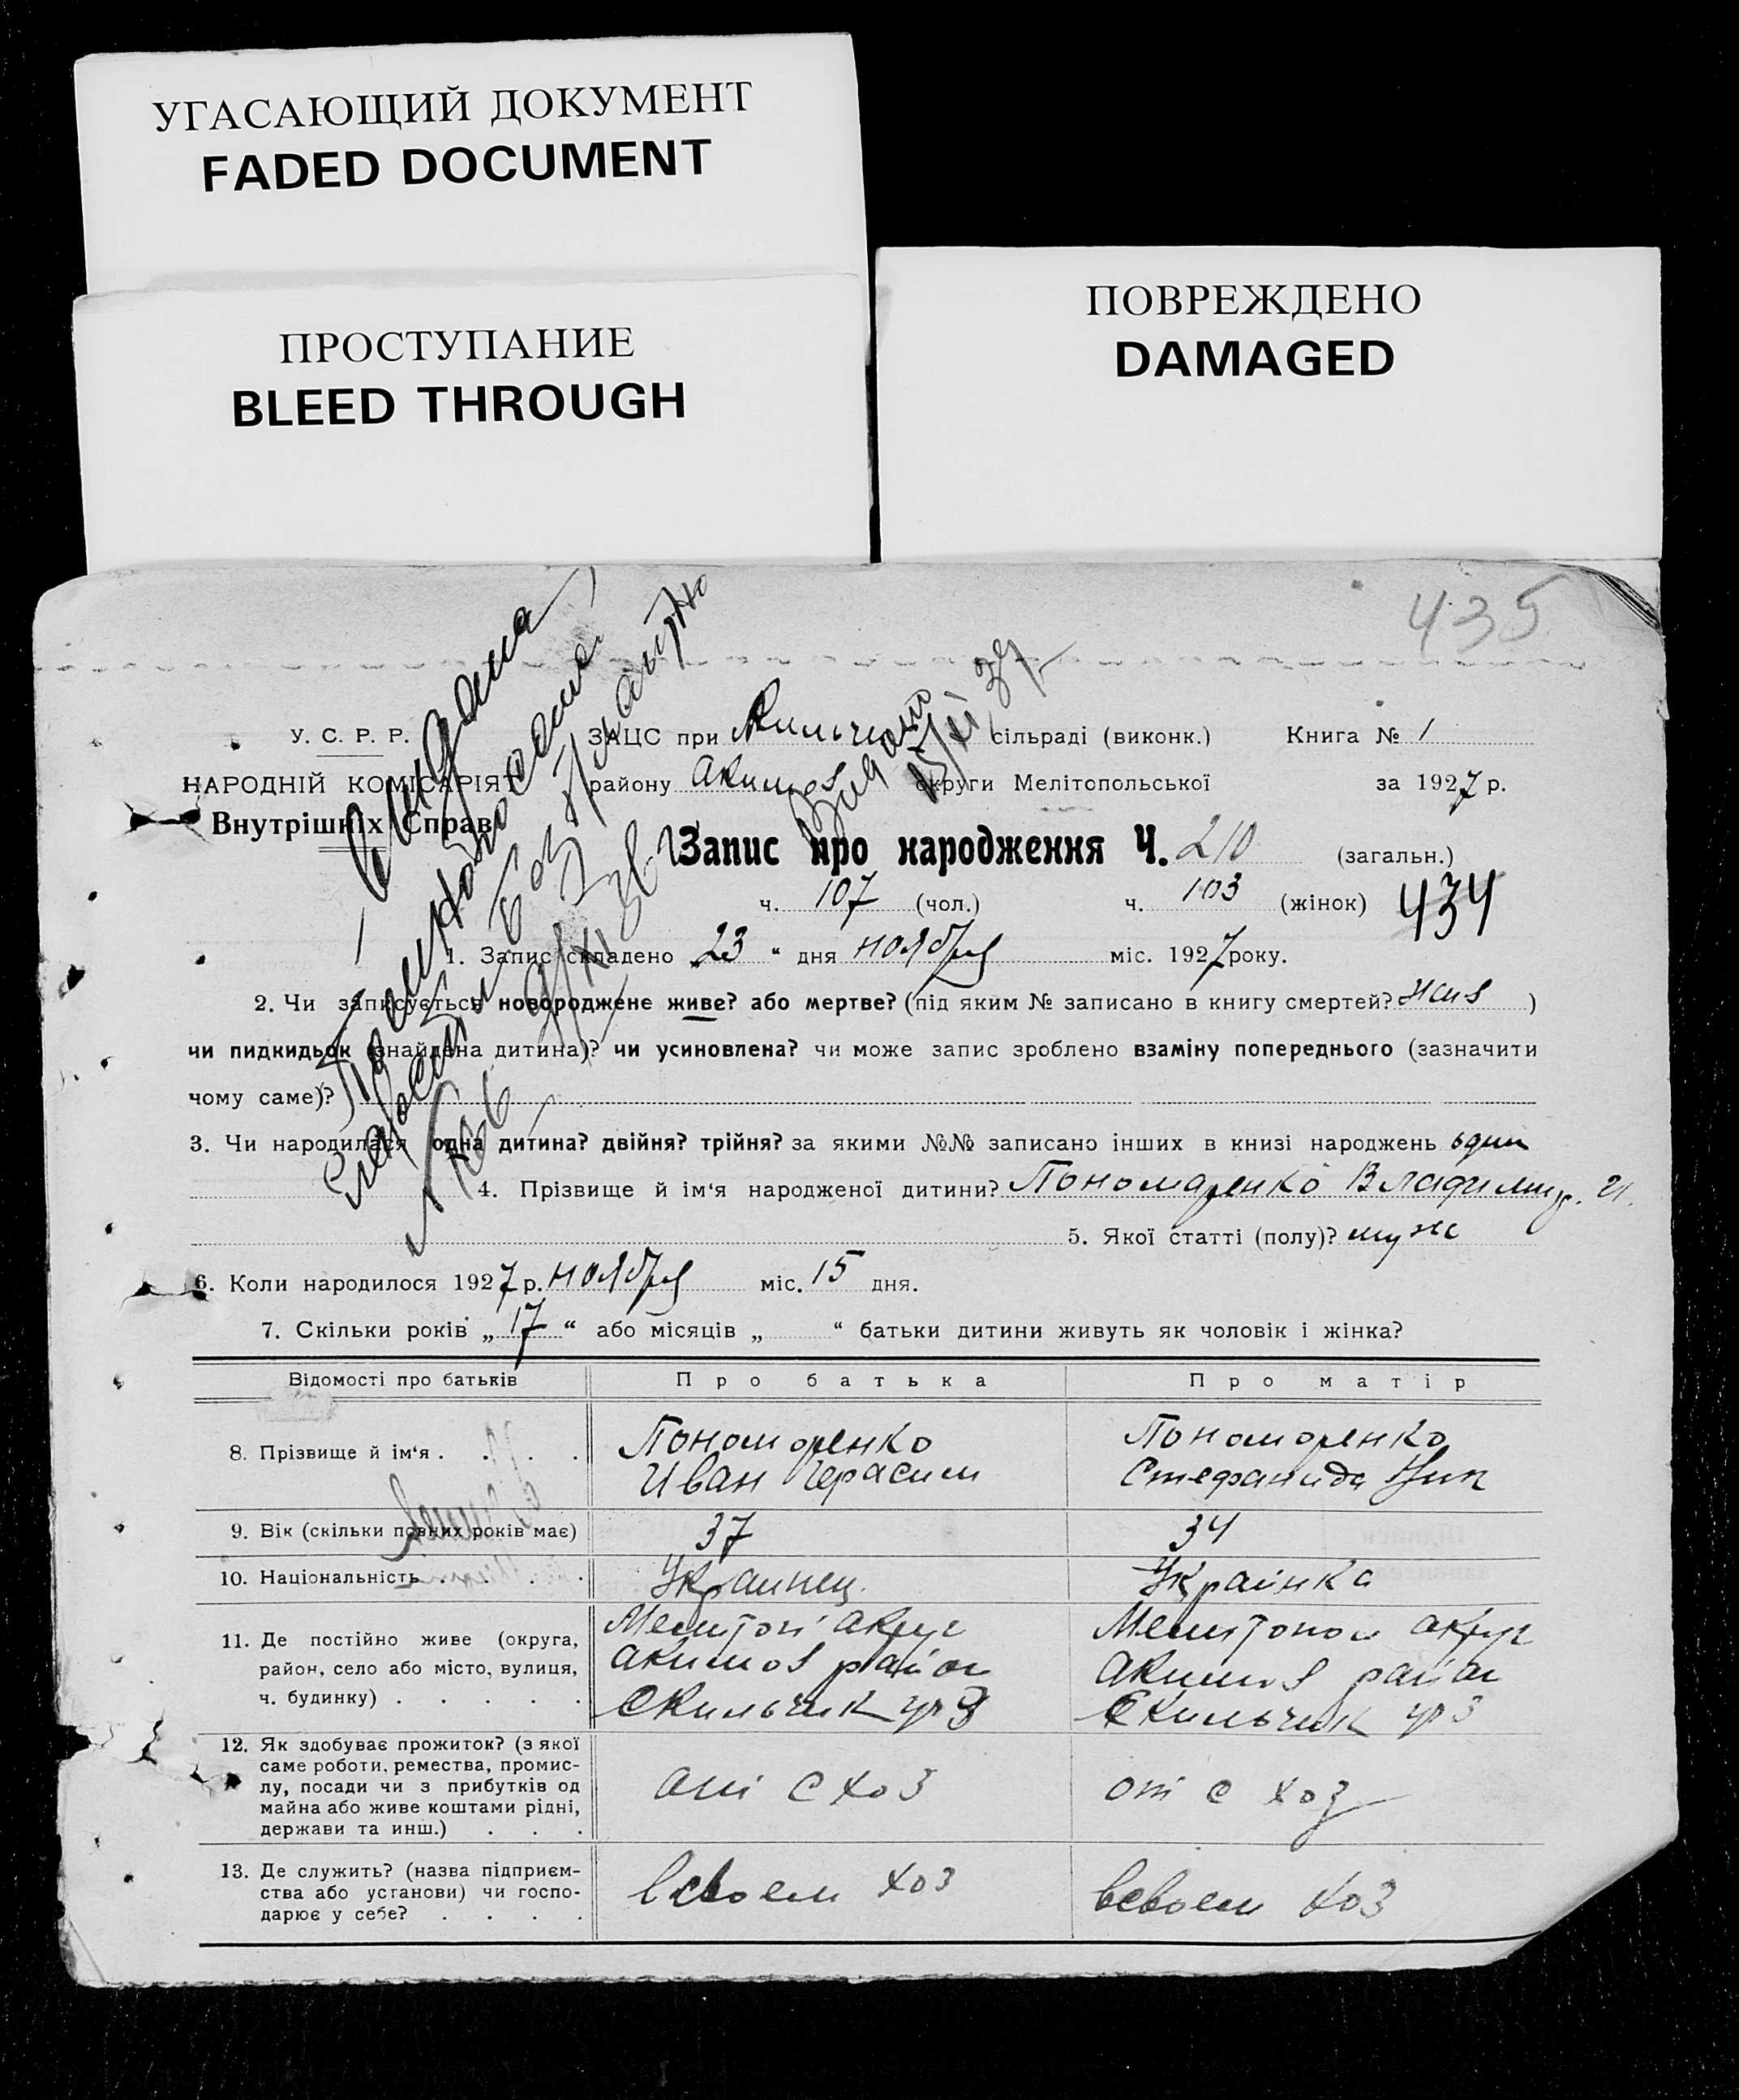 УГАСАЮЩИЙ ДОКУМЕНТ
FADED DOCUMENT
ПРОСТУПАНИЕ
BLEED THROUGH
ПОВРЕЖДЕНО
DAMAGED
435
У. С. Р. Р.
НАРОДНІЙ КОМІСАРІЯТ
Внутрішніх Справ
ЗАЦС при сільраді (виконк.)
Книга № 1
району Акимов округи Мелітопольської
за 1927 р.
Запис про народження Ч. 210 (загальн.)
ч. 107 (чол.) ч. 103 (жінок) 434
1. Запис складено „23“ дня ноября міс. 1927 року.
2. Чи записується новороджене живе? або мертве? (під яким № записано в книгу смертей? жив )
чи пидкидьок (знайдена дитина)? чи усиновлена? чи може запис зроблено взаміну попереднього (зазначити
чому саме)?
3. Чи народилася одна дитина? двійня? трійня? за якими №№ записано інших в книзі народжень один
4. Прізвище й ім‘я народженої дитини? Пономаренко Владимир. И.
5. Якої статті (полу)? муж
6. Коли народилося 1927 р. ноября міс. 15 дня.
7. Скільки років „17“ або місяців „ “ батьки дитини живуть як чоловік і жінка?
Відомості про батьків
Про батька
Про матір
8. Прізвище й ім‘я . . . .
Пономоренко
Иван Герасим
Пономоренко
Стефанида Ник
9. Вік (скільки повних років має)
37
34
10. Національність . . . .
Украинец
Украинка
11. Де постійно живе (округа,
район, село або місто, вулиця,
ч. будинку) . . . . .
Мелитоп акруг
Акимов район
Мелитопол акруг
Акимов район
12. Як здобуває прожиток? (з якої
саме роботи, ремества, промис-
лу, посади чи з прибутків од
майна або живе коштами рідні,
держави та инш.) . . .
от с хоз
от с хоз
13. Де служить? (назва підприєм-
ства або установи) чи госпо-
дарює у себе? . . . .
всвоем хоз
всвоем хоз